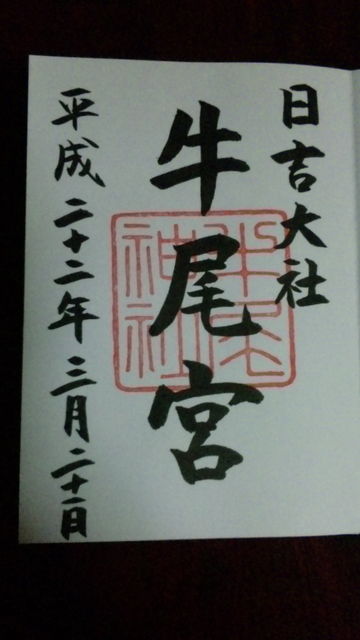 日吉大社
牛尾宮
牛尾神社
平成二十二年三月二十一日